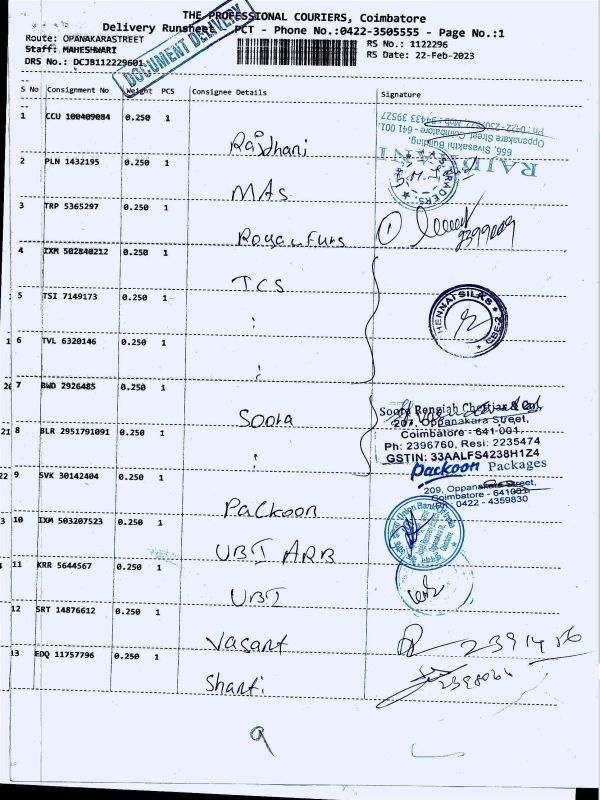 THE PROFESSIONAL COURIERS, Coimbatore
Delivery Runsheet - PCT - Phone No.:0422-3505555 - Page No.:1
Route: OPANAKARASTREET
Staff: MAHESHWARI
DRS No.: DCJB112229601
RS No.: 1122296
RS Date: 22-Feb-2023
DOCUMENT DELIVERY
S No Consignment No Weight PCS Consignee Details Signature
1 CCU 100409084 0.250 1 Rajdhani
Ph : 0422 - 2307677 Mob : 94433 39527
Oppanakare Street, Coimbatore - 641 001.
666, Sivasakthi Building,
2 PLN 1432195 0.250 1 MAS
TRADERS
3 TRP 5365297 0.250 1 Royal Furs
1
2399009
4 IXM 502840212 0.250 1 TCS
5 TSI 7149173 0.250 1
HENNAI SILKS CBE-2
6 TVL 6320146 0.250 1
7 BWD 2926485 0.250 1 Soora
Soora Rengiah Chettiar & Co.,
207, Oppanakara Street,
Coimbatore - 641 001.
Ph: 2396760, Resi: 2235474
GSTIN: 33AALFS4238H1Z4
8 BLR 2951791091 0.250 1
Packoon Packages
209, Oppanakara Street,
Coimbatore - 641001
Ph : 0422 - 4359830
9 SVK 30142404 0.250 1 Packoon
10 IXM 503207523 0.250 1 UBI ARB
Union Bank of India
11 KRR 5644567 0.250 1 UBI
12 SRT 14876612 0.250 1 Vasant
13 EDQ 11757796 0.250 1 Shanti
9